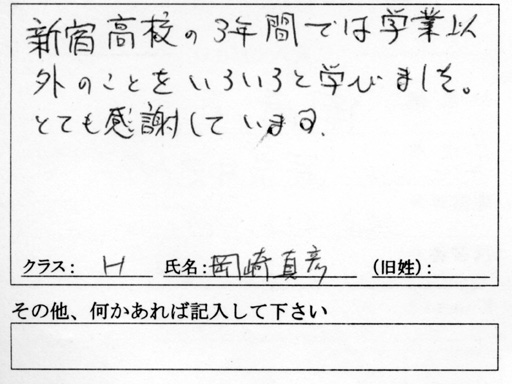 新宿高校の3年間では学業以
外のことをいろいろと学びました。
とても感謝しています。
クラス： H 氏名：岡崎真彦 （旧姓）：
その他、何かあれば記入して下さい